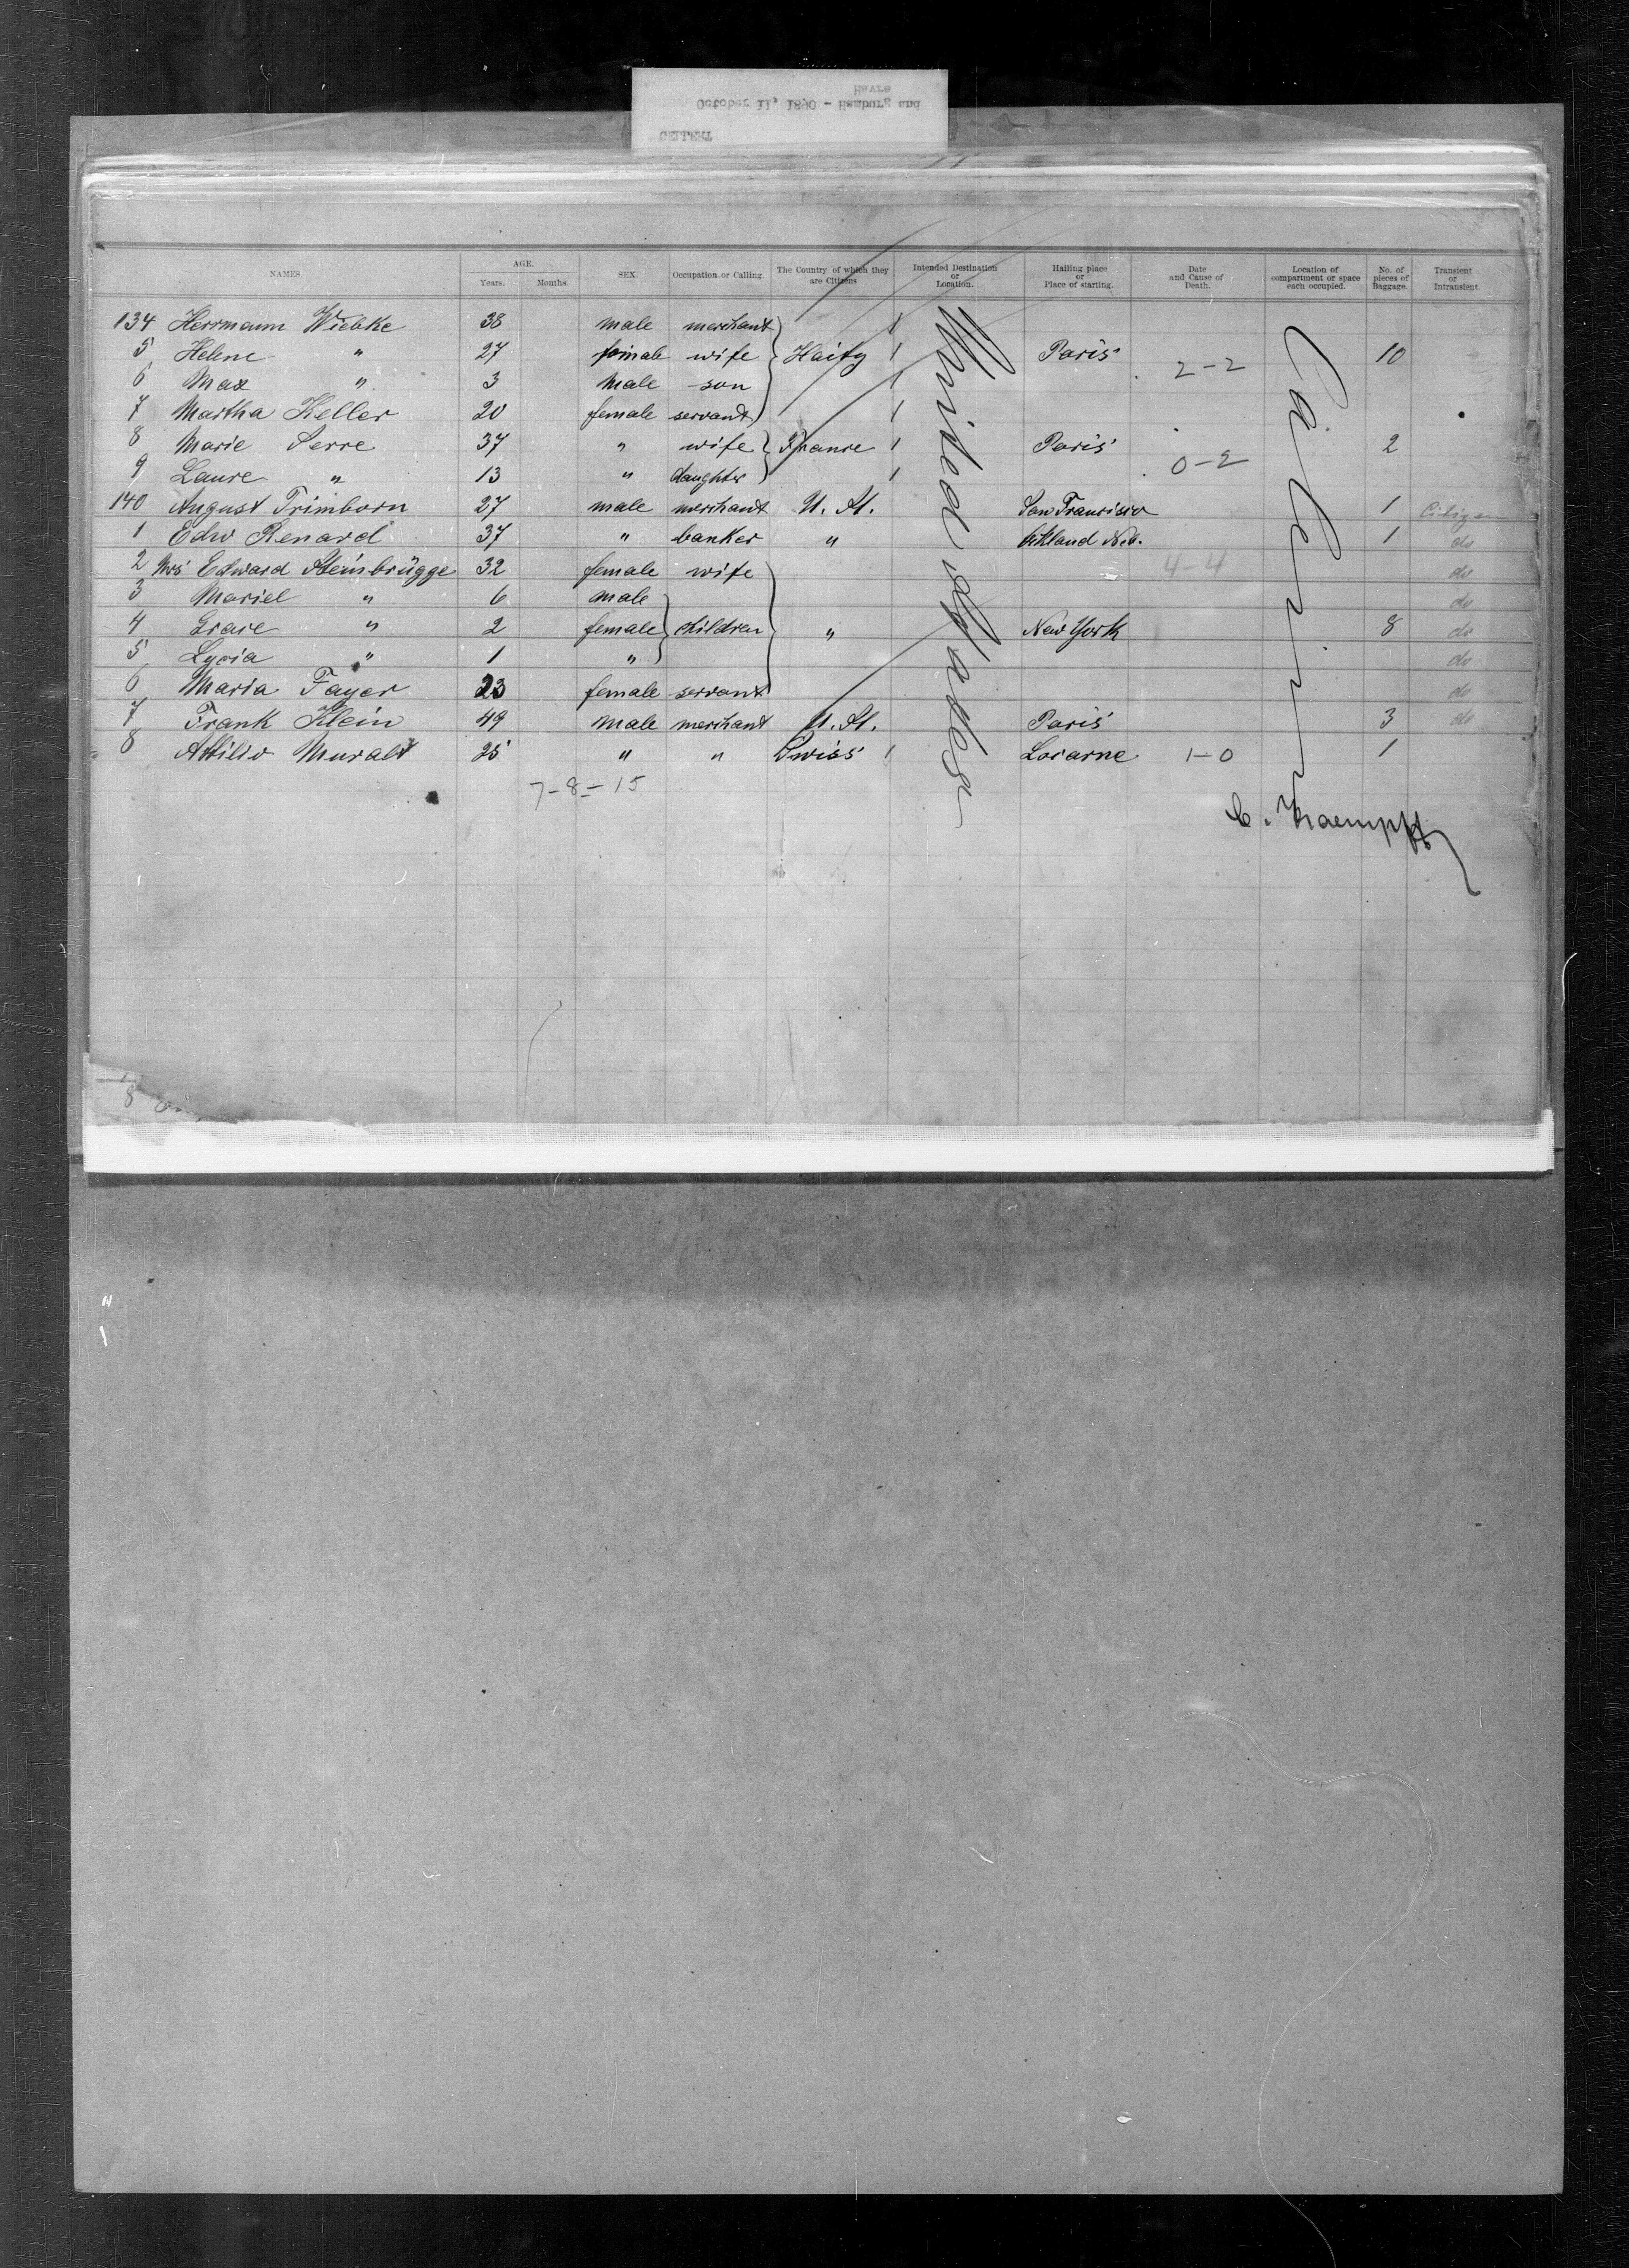 GELLERT
October 11, 1890 - Hamburg and
Havre
NAMES. AGE. Years. Months. SEX. Occupation or Calling. The Country of which they are Citizens Intended Destination or Location. Hailing place or Place of starting. Date and Cause of Death. Location of compartment or space each occupied. No. of pieces of Baggage. Transient or Intransient.
134 Herrmann Wiebke 38 male merchant
5 Helene " 27 female wife Haity Paris 2-2 10
6 Max " 3 male son
7 Martha Keller 20 female servant
8 Marie Serre 37 " wife France Paris 2
9 Laure " 13 " daughter 0-2
140 August Trimborn 27 male merchant U. St. San Francisco 1 Citizen
1 Edw Renard 37 " banker " Neb. 1 do
2 Mrs Edward Steinbrügge 32 female wife 4-4 do
3 Mariel " 6 male do
4 Grace " 2 female children " New York 8 do
5 Lycia " 1 " do
6 Maria Fayer 23 female servant do
7 Frank Klein 49 male merchant U. St. Paris 3 do
8 Attilio Muralt 25 " " Swiss Locarne 1-0 1
7-8-15
United States
Cabin
C. Kaempff
8